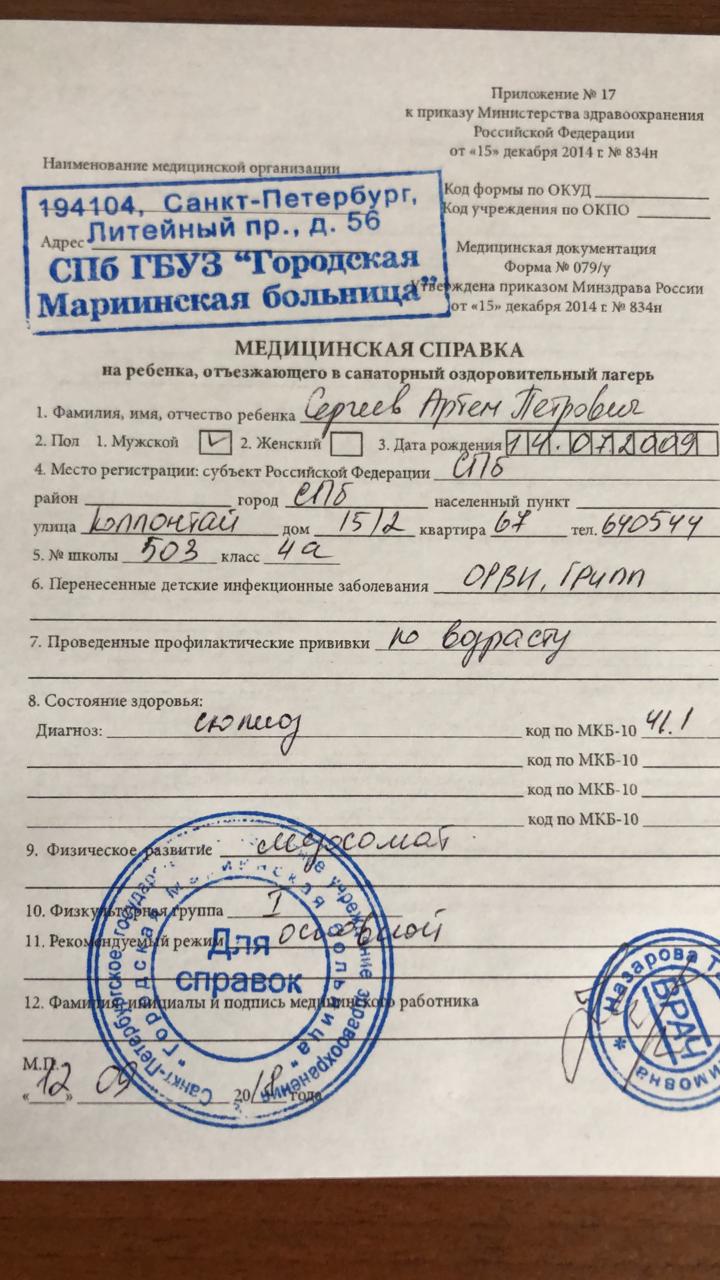 Приложение № 17
к приказу Министерства здравоохранения
Российской Федерации
от «15» декабря 2014 г. № 834н
Наименование медицинской организации
194104, Санкт-Петербург,
Литейный пр., д. 56
Адрес
СПб ГБУЗ “Городская
Мариинская больница”
Код формы по ОКУД
Код учреждения по ОКПО
Медицинская документация
Форма № 079/у
Утверждена приказом Минздрава России
от «15» декабря 2014 г. № 834н
МЕДИЦИНСКАЯ СПРАВКА
на ребенка, отъезжающего в санаторный оздоровительный лагерь
1. Фамилия, имя, отчество ребенка Сергеев Артем Петрович
2. Пол 1. Мужской 2. Женский 3. Дата рождения 14.072009
4. Место регистрации: субъект Российской Федерации СПб
район город СПб населенный пункт
улица Коллонтай дом 15/2 квартира 67 тел. 640544
5. № школы 503 класс 4а
6. Перенесенные детские инфекционные заболевания ОРВИ, Грипп
7. Проведенные профилактические прививки по водрасту
8. Состояние здоровья:
Диагноз: код по МКБ-10 41.1
код по МКБ-10
код по МКБ-10
код по МКБ-10
9. Физическое развитие
10. Физкультурная группа I
11. Рекомендуемый режим основной
12. Фамилия, инициалы и подпись медицинского работника
М.П.
«12» 09 2018 года
Санкт-Петербургское государственное учреждение здравоохранения
"Городская Мариинская больница"
Для
справок
Назарова Т
ВРАЧ
имовна